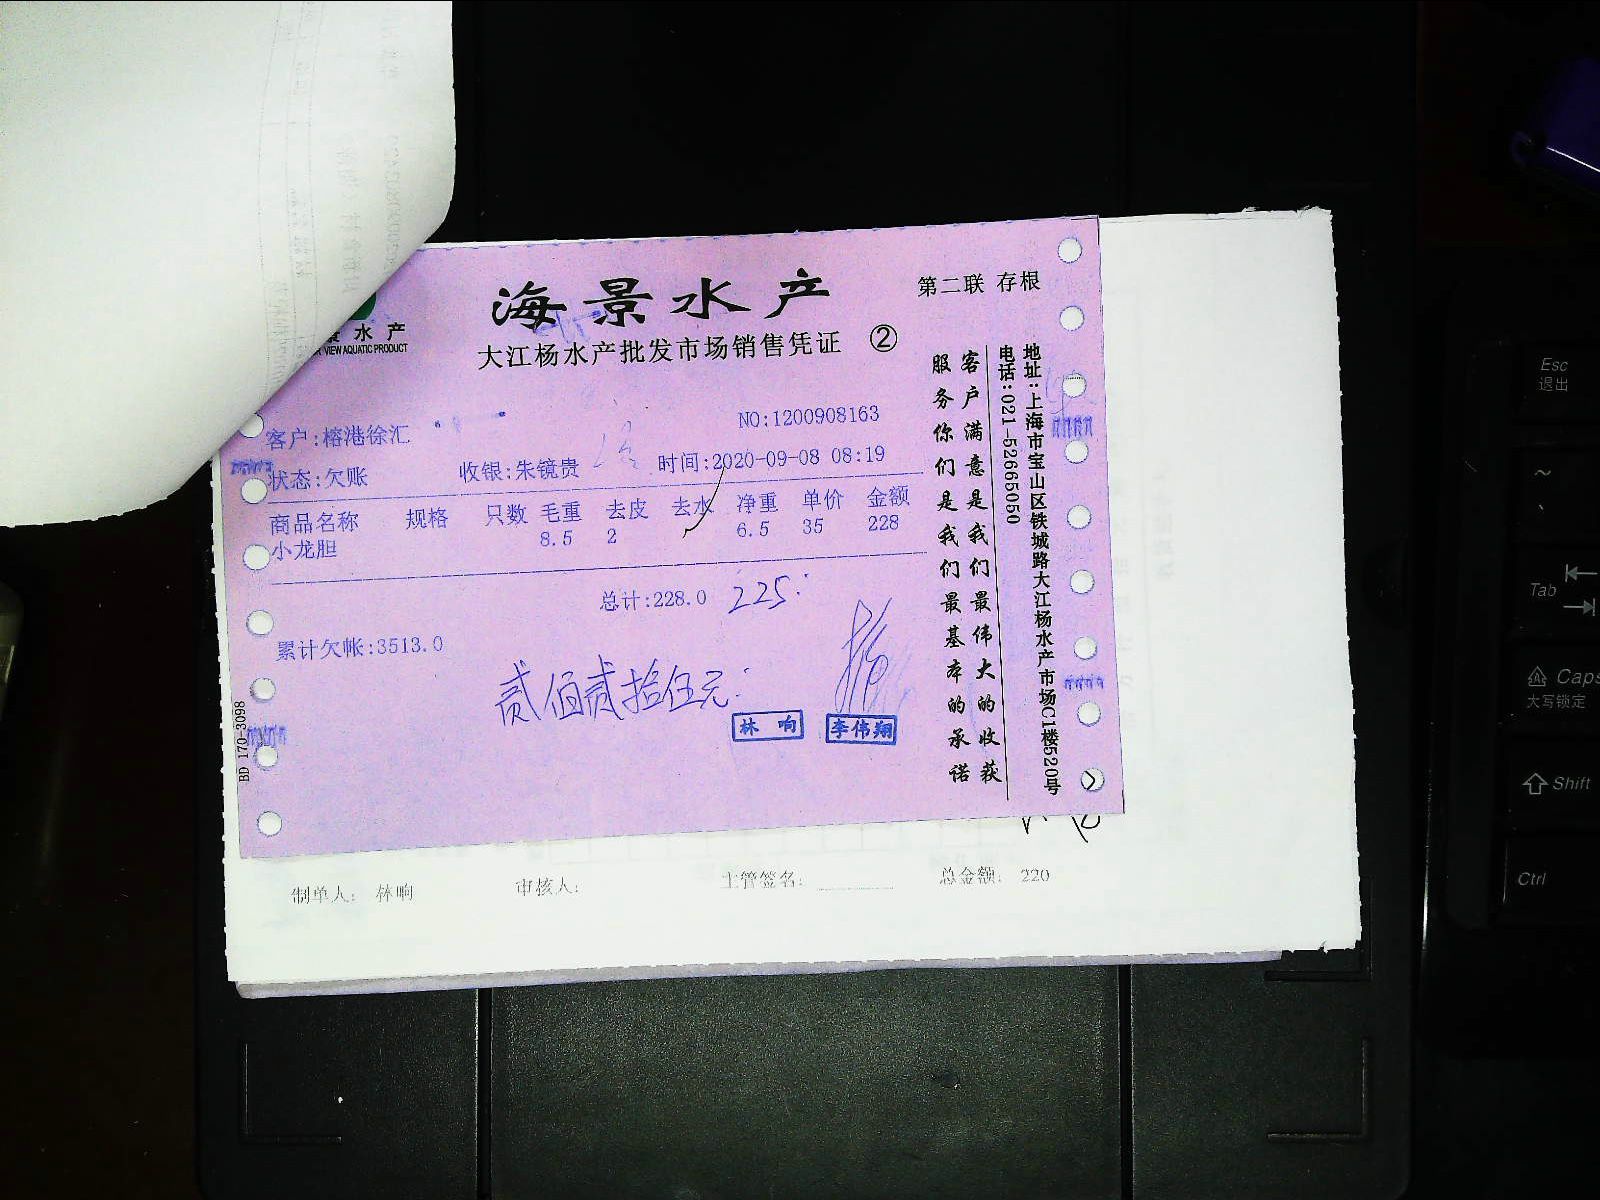 海景水产
第二联 存根
水产
VIEW AQUATIC PRODUCT
大江杨水产批发市场销售凭证 ②
NO:1200908163
客户:榕港徐汇
状态:欠账 收银:朱镜贵 时间:2020-09-08 08:19
商品名称 规格 只数 毛重 去皮 去水 净重 单价 金额
小龙胆 8.5 2 6.5 35 228
总计:228.0 225
累计欠帐:3513.0
贰佰贰拾伍元
林响 李伟翔
BD 170-3098
客户满意是我们最伟大的收获
服务你们是我们最基本的承诺
地址:上海市宝山区铁城路大江杨水产市场C1楼520号
电话:021-52665050
制单人: 林响 审核人: 主管签名: 总金额: 220
Esc
退出
~
、
Tab
Caps
大写锁定
Shift
Ctrl